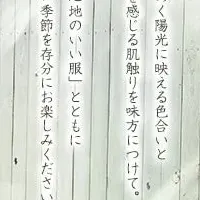 く陽光に映える色合いと
を感じる肌触りを味方につけて。
地のいい服」とともに
季節を存分にお楽しみください